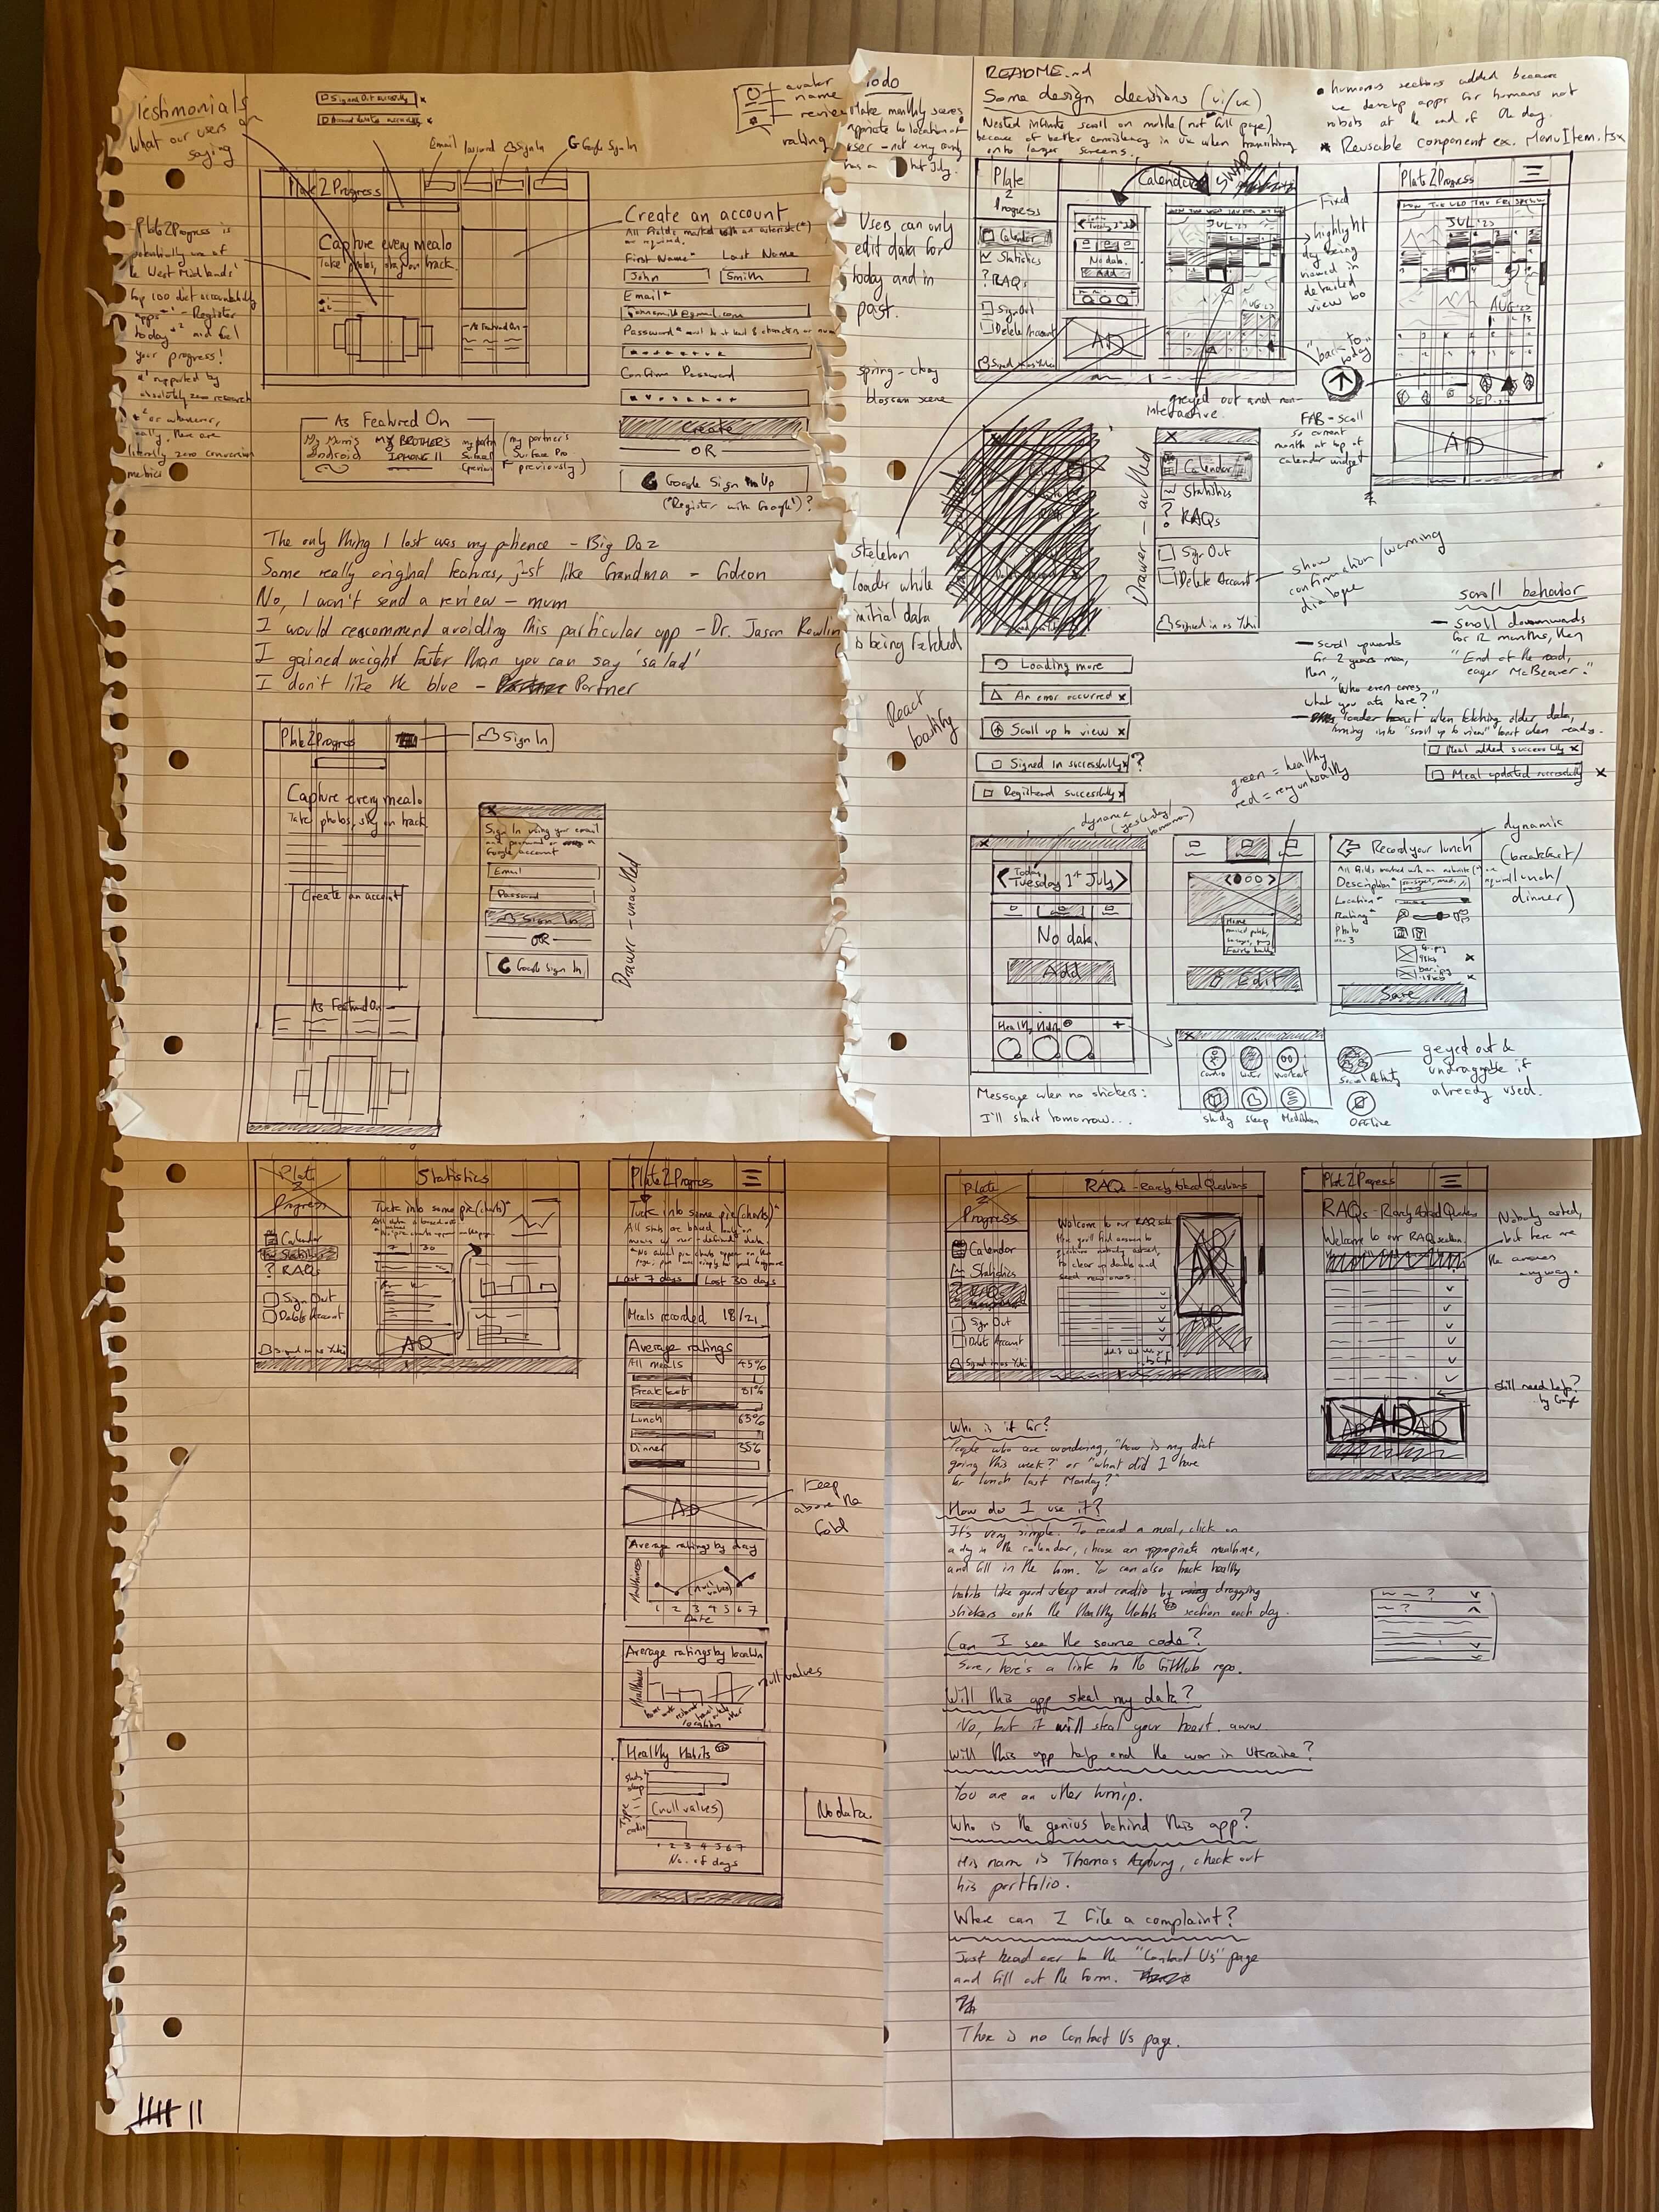 Testimonials
What our users
saying
Signed Out successfully x
Email
Password
Sign In
G Google Sign In
avatar
name
review
rating
Plate2Progress
Capture every meal
Take photos, stay on track.
As Featured On
Plate2Progress is
potentially one of
West Midlands'
top 100 diet accountability
apps*1 - Register
today*2 and fuel
your progress!
*1 supported by
absolutely zero research
*2 or whenever,
really, there are
literally zero conversion
metrics
Create an account
All fields marked with an asterisk(*)
are required.
First Name* Last Name
John Smith
Email*
johnsmith@gmail.com
Password* must be at least 8 characters
Confirm Password
Create
OR
Google Sign Up
("Register with Google")?
As Featured On
My Mum's
Android
MY BROTHER'S
IPHONE 11
(my partner's
Surface Pro
previously)
The only thing I lost was my patience - Big Daz
Some really original features, just like Grandma - Gideon
No, I won't send a review - mum
I would recommend avoiding this particular app - Dr. Jason Rawlin
I gained weight faster than you can say 'salad'
I don't like the blue - Partner
Plate2Progress
Sign In
Capture every meal
Take photos, stay on track
Create an account
As Featured On
Sign In using your email
and password or a
Google account
Email
Password
Sign In
OR
Google Sign In
Drawer - unauthed
Todo
Make monthly scenes
appropriate to location of
user - not everybody
has a hot July.
Users can only
edit data for
today and in
past.
spring - cherry
blossom scene
skeleton
loader while
initial data
is being fetched
React
toastify
README.md
Some design decisions (ui/ux)
Nested infinite scroll on mobile (not full page)
because of better consistency in ux when transitioning
onto larger screens.
• humorous sections added because
we develop apps for humans not
robots at the end of the day.
* Reusable component ex. MenuItem.tsx
Plate
2
Progress
Calendar
SWAP
Calendar
Statistics
? RAQs
Sign Out
Delete Account
Signed in as Yuki
No data.
Add
AD
JUL '23
AUG '23
Fixed
highlight
day being
viewed in
detailed
view too
"back to
today"
greyed out and non-
interactive.
FAB - scroll
so current
month at top of
calendar widget
Plate2Progress
JUL '23
AUG '23
SEP '23
AD
Drawer - authed
Calendar
Statistics
? RAQs
Sign Out
Delete Account
Signed in as Yuki
show
confirmation/warning
dialogue
scroll behavior
- scroll downwards
for 12 months, then
"End of the road,
eager McBeaver."
- scroll upwards
for 2 years max,
then
"Who even cares
what you ate here?"
- loader toast when fetching older data,
turning into "scroll up to view" toast when ready.
Loading more
An error occurred x
Scroll up to view x
Signed in successfully x ?
Registered successfully x
Meal added successfully x
Meal updated successfully x
green = healthy
red = very unhealthy
dynamic
(yesterday/
tomorrow)
Today
< Tuesday 1st July >
No data.
Add
Healthy Habits +
Home
Edit
Record your lunch
All fields marked with an asterisk(*) are required
Description*
Location*
Rating*
Photo
max 3
Save
dynamic
(breakfast/
lunch/
dinner)
cardio water workout
study sleep Meditation
Social Activity
Offline
greyed out &
undraggable if
already used.
Message when no stickers:
I'll start tomorrow...
Plate
2
Progress
Statistics
Tuck into some pie(charts)*
7 30
Calendar
Statistics
? RAQs
Sign Out
Delete Account
Signed in as Yuki
AD
Plate2Progress
Tuck into some pie(charts)*
Last 7 days Last 30 days
Meals recorded 18/21
Average ratings
All meals 45%
Breakfast 81%
Lunch 65%
Dinner 35%
AD
keep
above the
fold
Average ratings by day
Healthiness
(null value)
1 2 3 4 5 6 7
Date
Average ratings by location
Healthiness
null values
Location
Healthy Habits
study
sleep
Type
(null values)
cardio
1 2 3 4 5 6 7
No. of days
No data.
Plate
2
Progress
RAQs - Rarely Asked Questions
Welcome to our RAQ section.
Here you'll find answers to
questions nobody asked,
to clear up doubts and
seed new ones.
Calendar
Statistics
? RAQs
Sign Out
Delete Account
Signed in as Yuki
AD
Plate2Progress
RAQs - Rarely Asked Questions
Welcome to our RAQ section.
Nobody asked,
but here are
the answers
anyway.
still need help?
by Google
AD
Who is it for?
People who are wondering, "how is my diet
going this week?" or "what did I have
for lunch last Monday?"
How do I use it?
It's very simple. To record a meal, click on
a day in the calendar, choose an appropriate mealtime,
and fill in the form. You can also track healthy
habits like good sleep and cardio by dragging
stickers onto the Healthy Habits section each day.
Can I see the source code?
Sure, here's a link to the GitHub repo.
Will this app steal my data?
No, but it will steal your heart. aww
Will this app help end the war in Ukraine?
You are an utter turnip.
Who is the genius behind this app?
His name is Thomas Asbury, check out
his portfolio.
Where can I file a complaint?
Just head over to the "Contact Us" page
and fill out the form.
There is no Contact Us page.